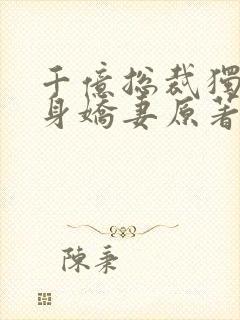 千億總裁獨
身嬌妻原著
陳秉